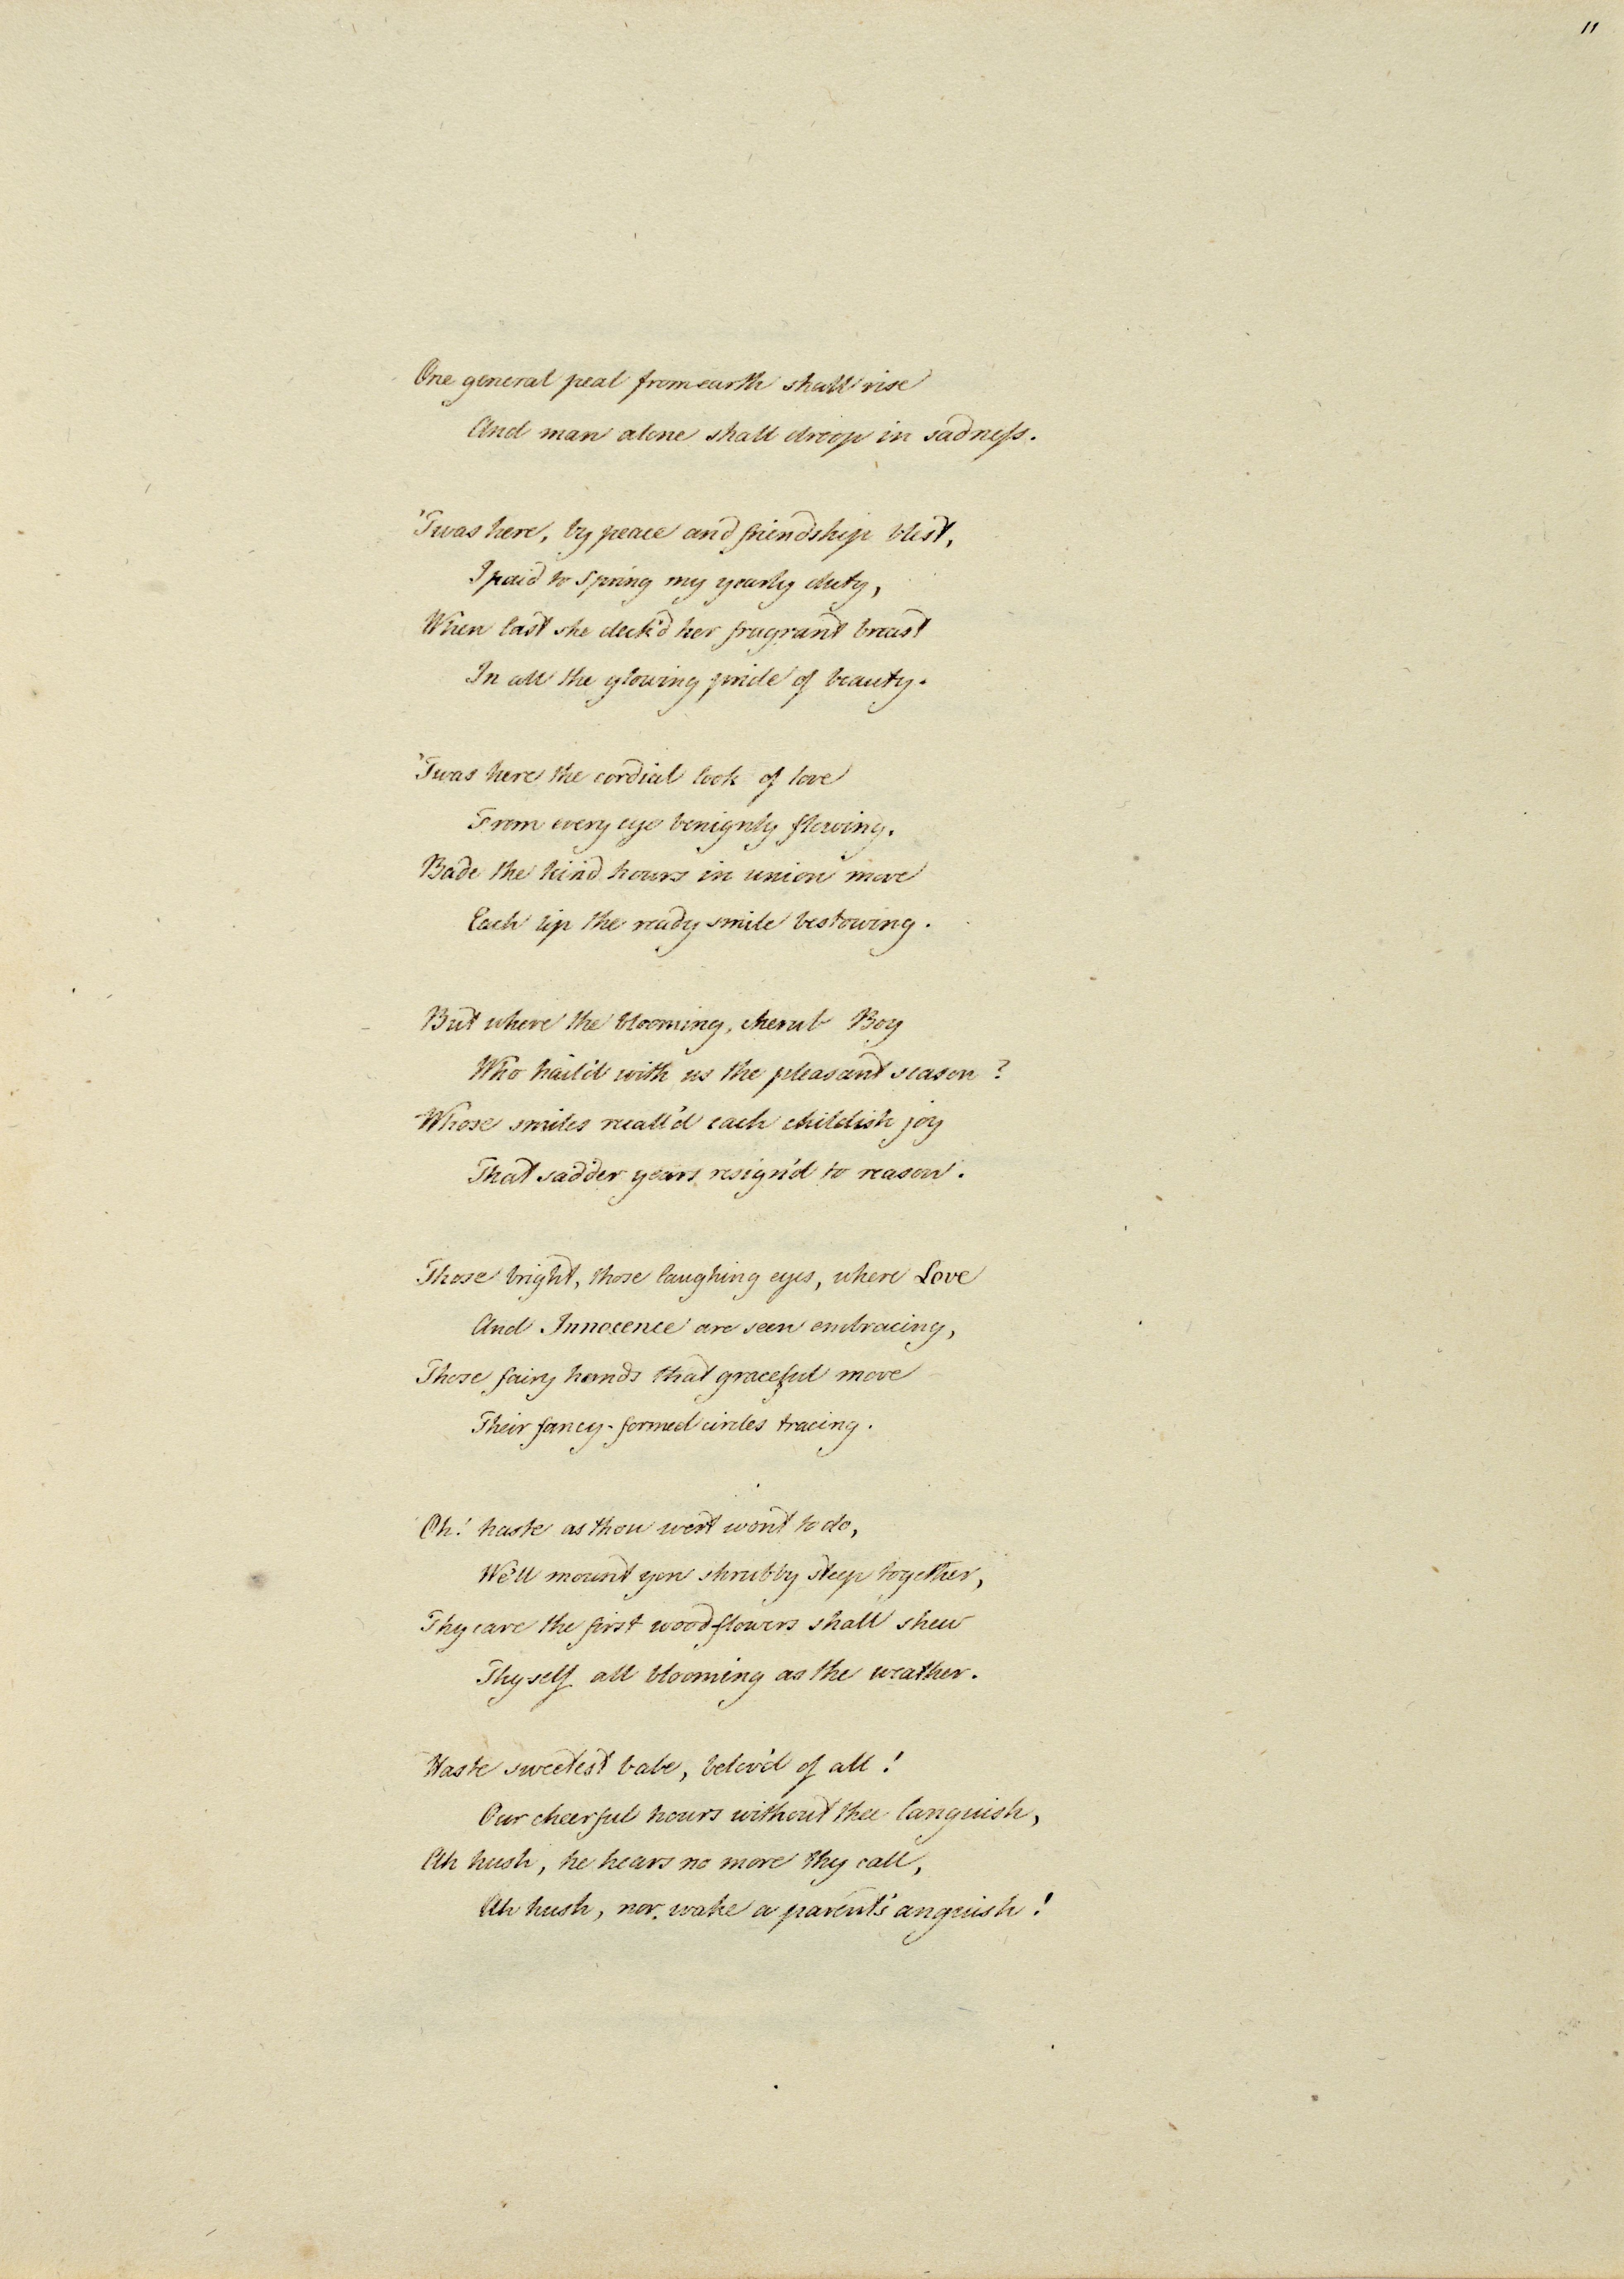 11
One general peal from earth shall rise
And man alone shall droop in sadneſs.
'Twas here, by peace and friendship blest,
I paid to Spring my yearly duty,
When last she deck'd her fragrant breast
In all the glowing pride of beauty.
'Twas here the cordial look of love
From every eye benignly flowing.
Bade the kind hours in union move
Each lip the ready smile bestowing.
But where the blooming, cherub Boy
Who hail'd with us the pleasant season?
Whose smiles recall'd each childish joy
That sadder years resign'd to reason.
Those bright, those laughing eyes, where Love
And Innocence are seen embracing,
Those fairy hands that graceful move
Their fancy-formed circles tracing.
Oh! haste as thou wert wont to do,
We'll mount yon shrubby steep together,
Thy care the first wood flowers shall shew
Thyself all blooming as the weather.
Haste sweetest babe, belov'd of all!
Our cheerful hours without thee languish,
Ah hush, he hears no more thy call,
Ah hush, nor wake a parent's anguish!